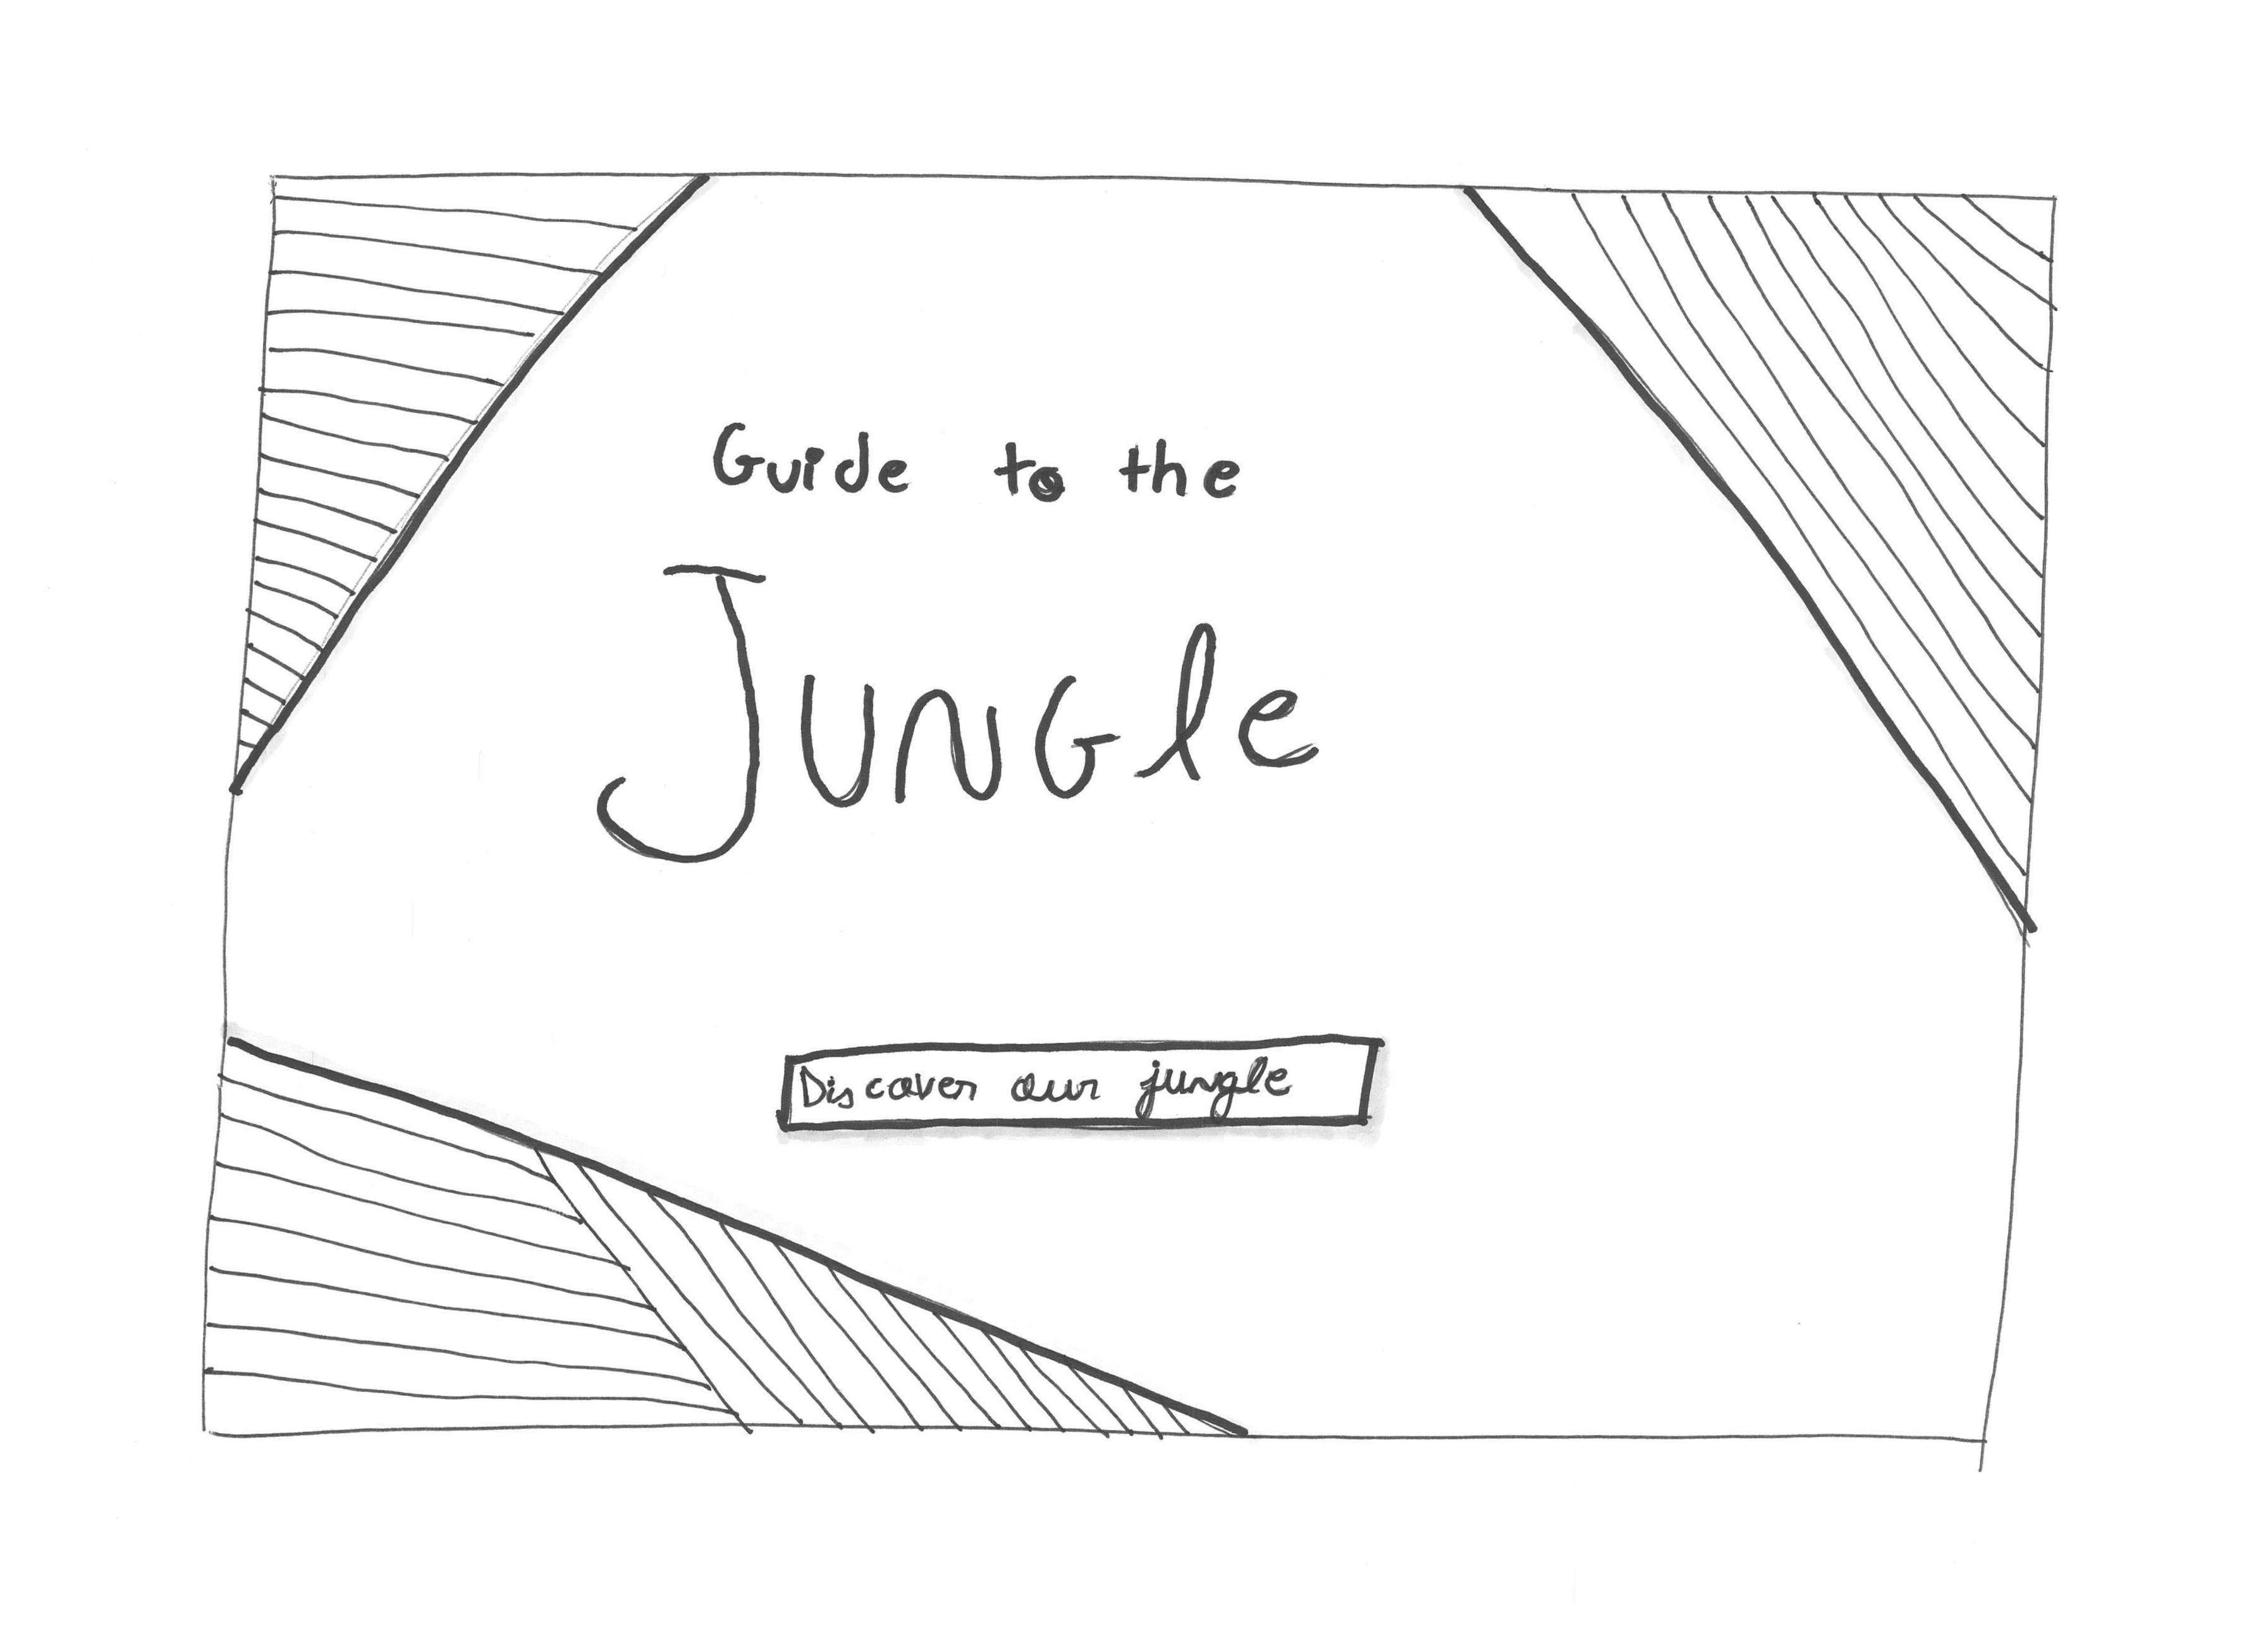 Guide to the
JUNGle
Discover our jungle